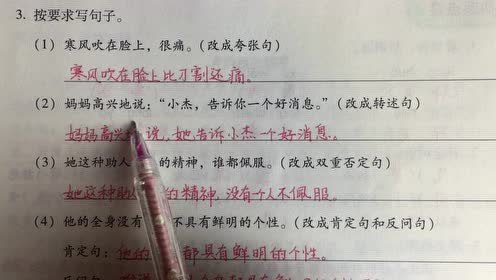 3. 按要求写句子。
(1) 寒风吹在脸上，很痛。(改成夸张句)
寒风吹在脸上比刀割还痛。
(2) 妈妈高兴地说：“小杰，告诉你一个好消息。”(改成转述句)
妈妈高兴 说，她告诉小杰一个好消息。
(3) 她这种助人 的精神，谁都佩服。(改成双重否定句)
她这种助人 的精神，没有一个人不佩服。
(4) 他的全身没有 不具有鲜明的个性。(改成肯定句和反问句)
肯定句：他的 都具有鲜明的个性。